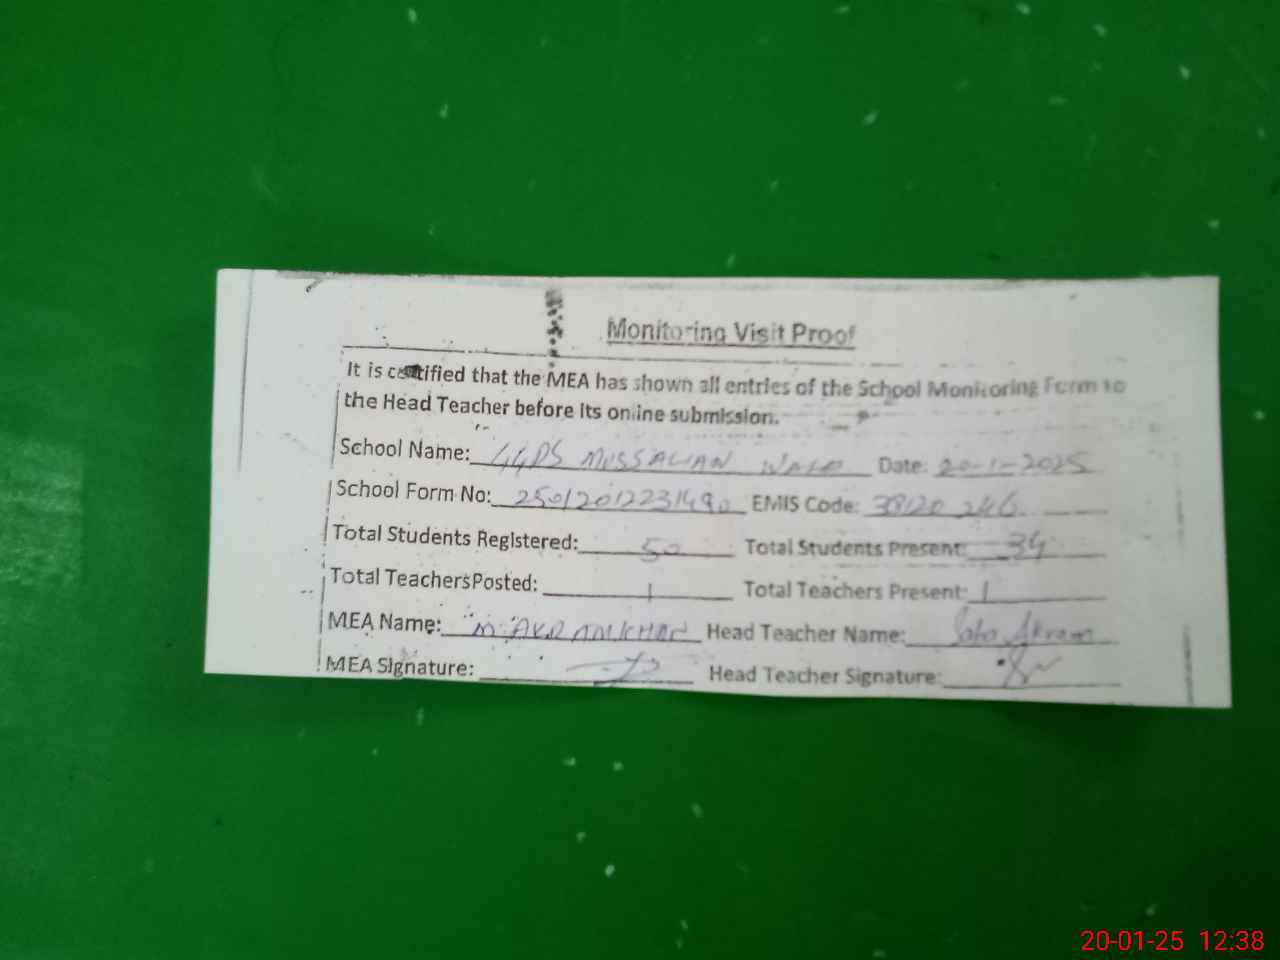 Monitoring Visit Proof
It is certified that the MEA has shown all entries of the School Monitoring Form to
the Head Teacher before its online submission.
School Name: GGPS MUSSALIAN WALA Date: 20-1-2025
School Form No: 25012012231490 EMIS Code: 38120246
Total Students Registered: 50 Total Students Present: 34
Total Teachers Posted: 1 Total Teachers Present: 1
MEA Name: M AKRAM KHAN Head Teacher Name: Akram
MEA Signature: Head Teacher Signature:
20-01-25 12:38